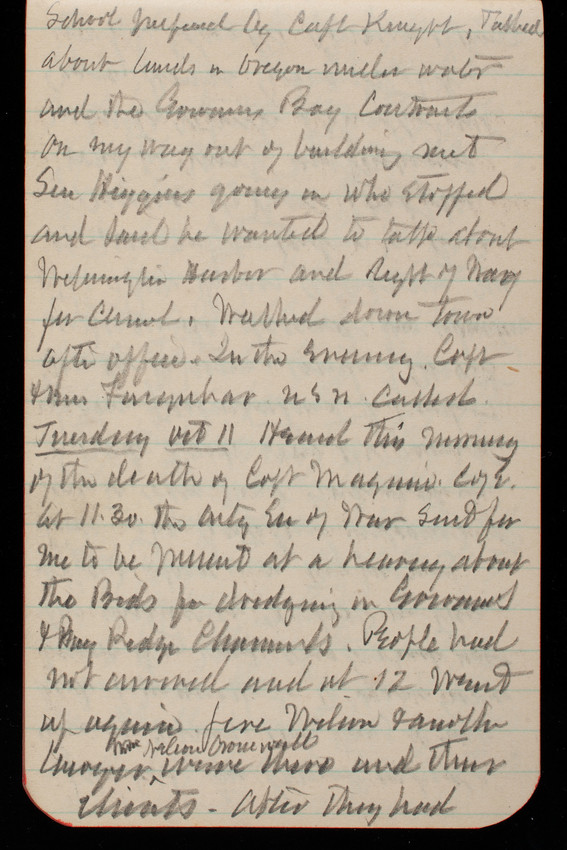 School prepared by Capt Knight, Talked
about lands in Oregon under water
and the Gowanus Bay Contracts
On my way out of building met
Sen Higgins going in who stopped
and said he wanted to talk about
Wilmington Harbor and Right of Way
for Canal. Walked down town
after office. In the Evening Capt
& Mrs Farquhar. U S N. called.
Tuesday Oct 11 Heard this morning
of the death of Capt Maguire. Cof E.
at 11.30. the actg Sec of War sent for
me to be present at a hearing about
the Bids for dredging in Gowanus
& Bay Ridge Channels. People had
not arrived and at 12 went
up again. Wilson & another
Nelson Cromwell
lawyer, were there and their
clients - After they had